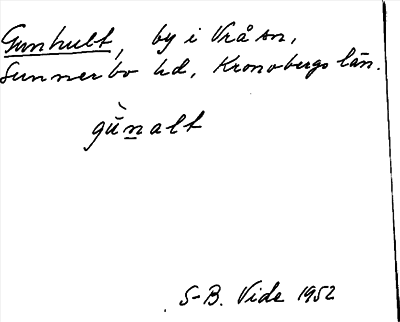 Gunhult, by i Vrå sn,
Sunnerbo hd, Kronobergs län.
gù̀nalt
S-B. Vide 1952